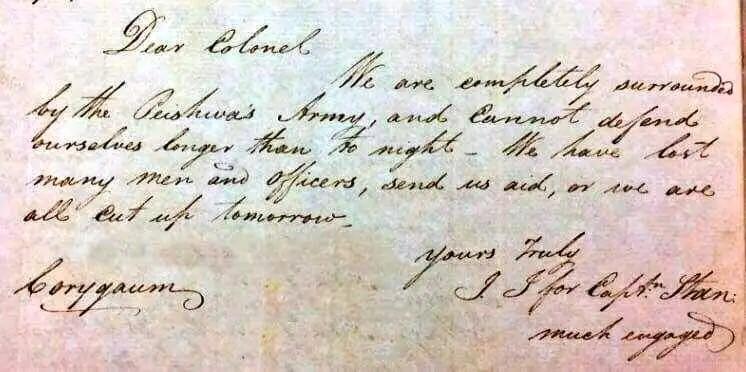 Dear Colonel
We are completely surrounded
by the Peishwa's Army, and Cannot defend
ourselves longer than to night - We have lost
many men and officers, send us aid, or we are
all cut up tomorrow
yours Truly
J. J for Captn. Stan:
Corygaum
much engaged